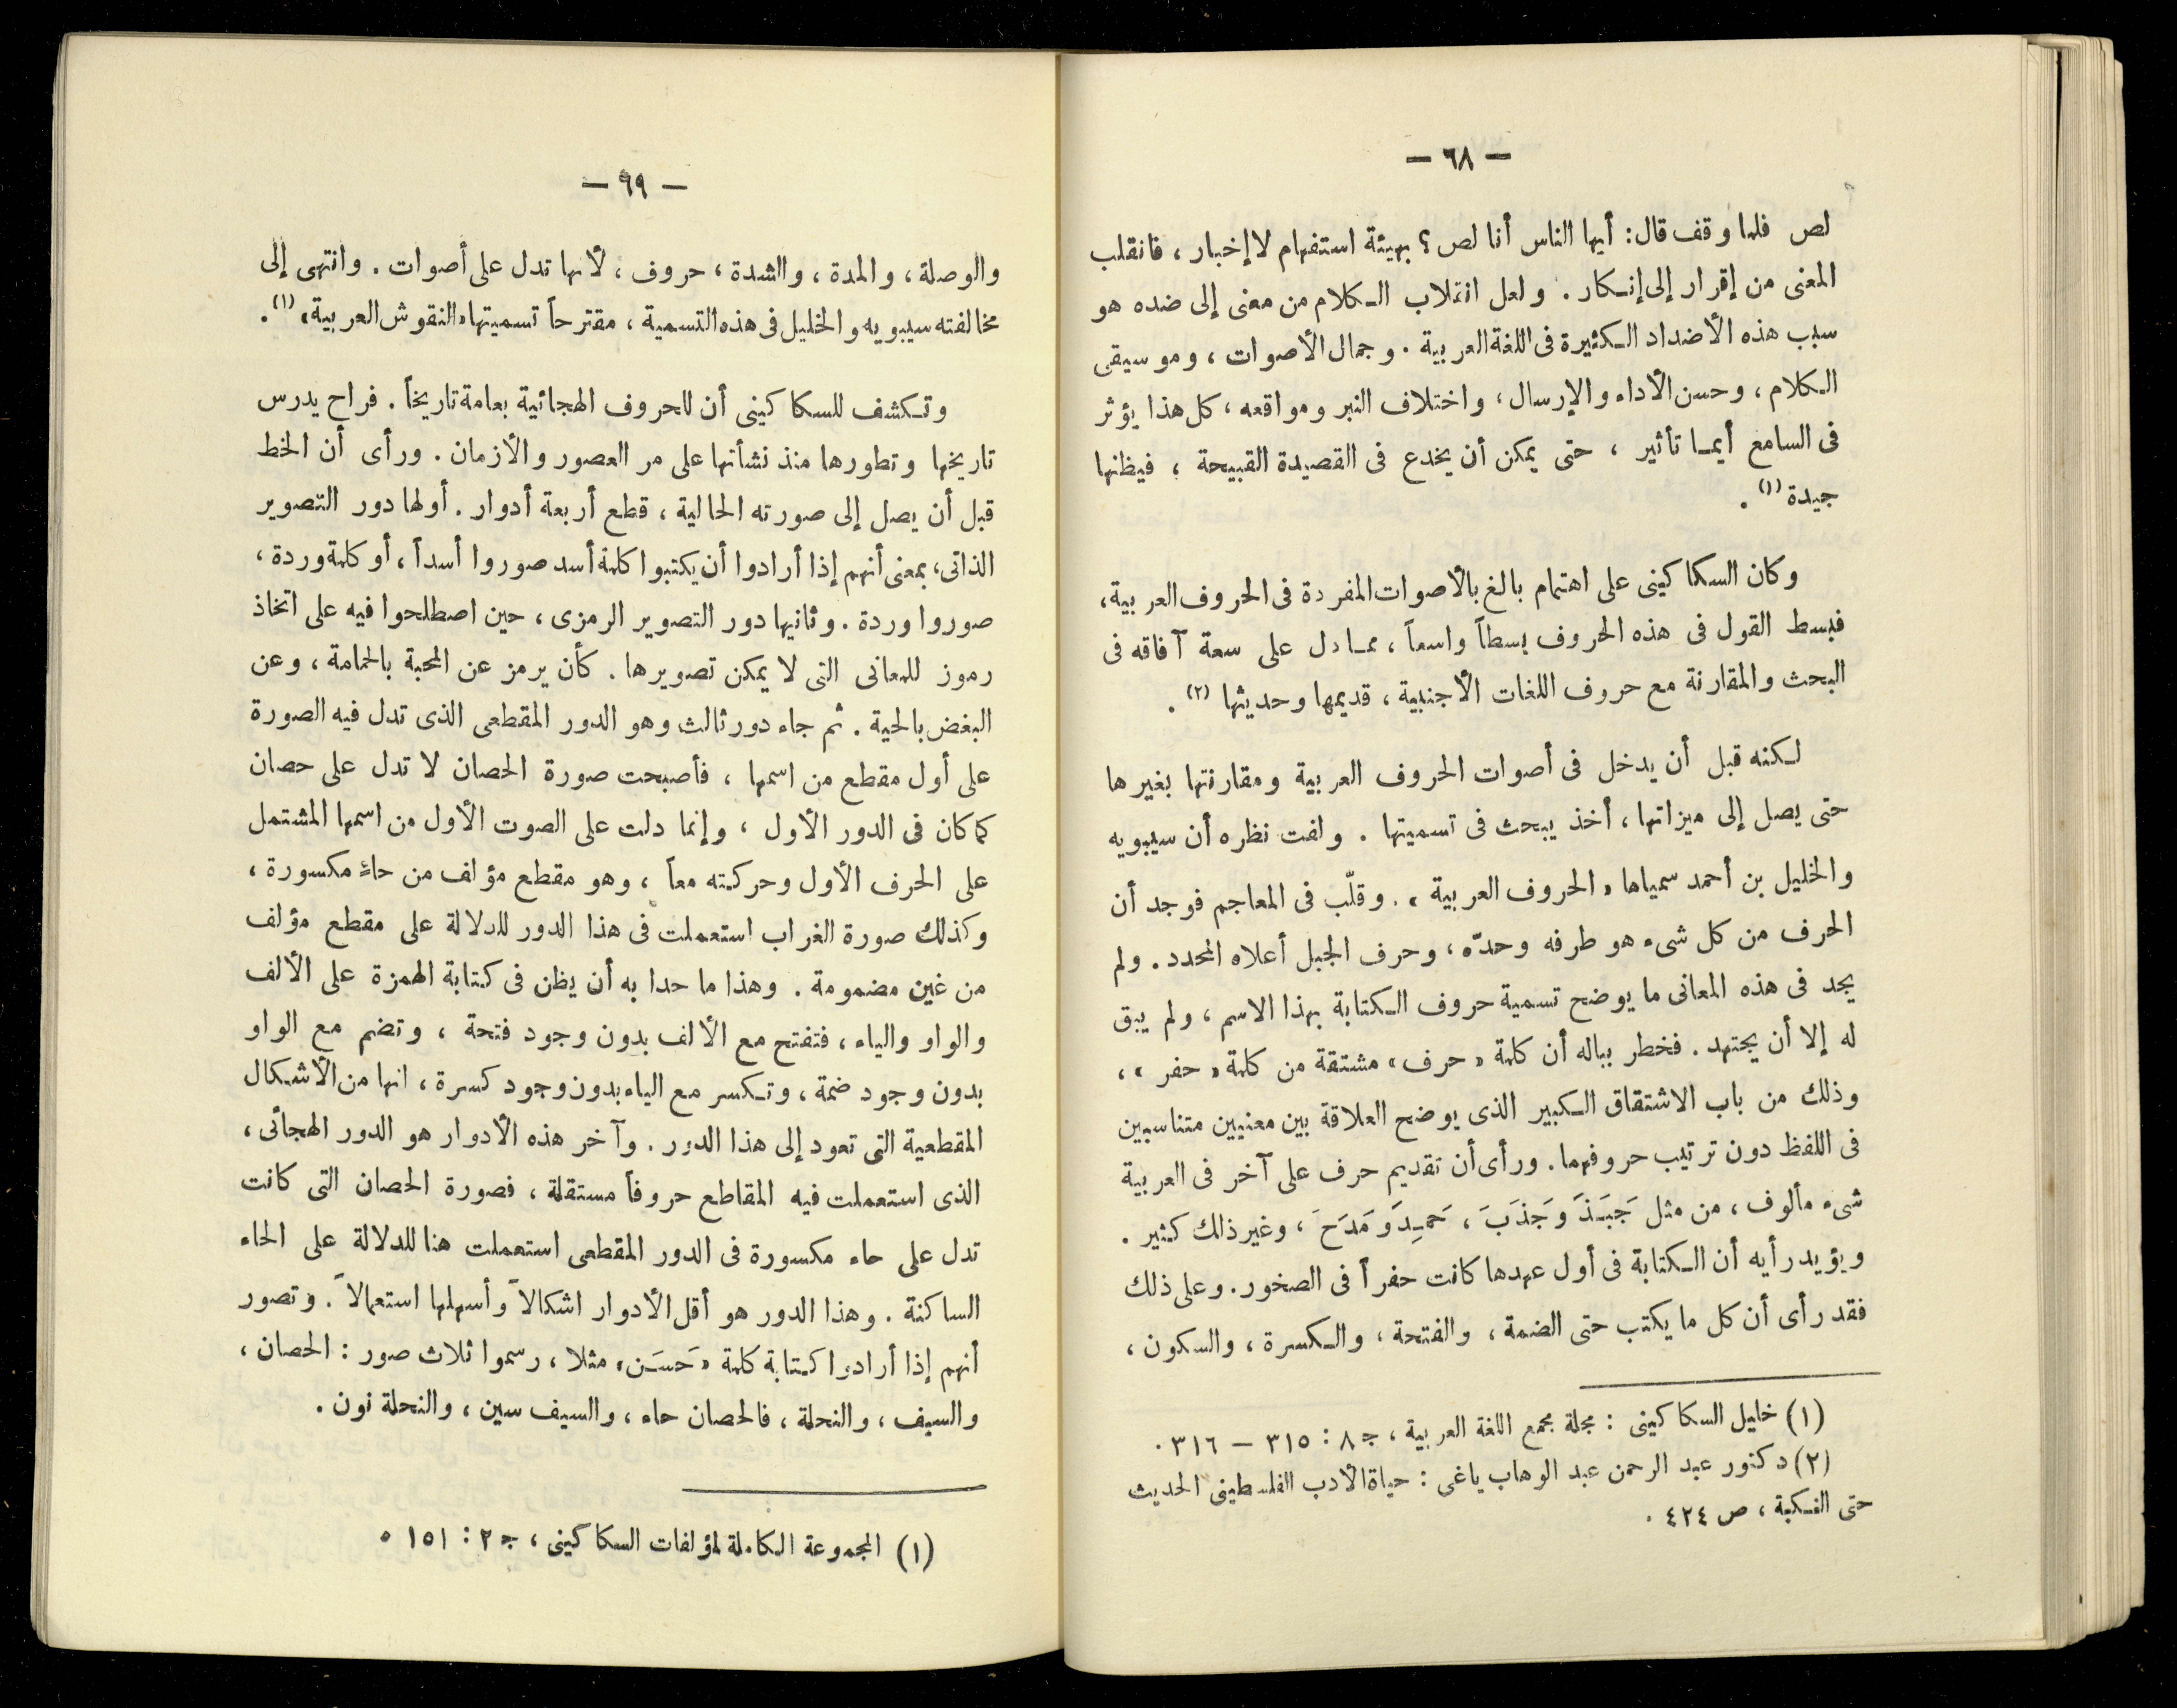 — ٦٨ —
لص فلما وقف قال: أيها الناس أنا لص؟ بهيئة استفهام لا إخبار، فانقلب
المعنى من إقرار إلى إنكار. ولعل انقلاب الكلام من معنى إلى ضده هو
سبب هذه الأضداد الكثيرة فى اللغة العربية. وجمال الأصوات، وموسيقى
الكلام، وحسن الأداء والإرسال، واختلاف النبر ومواقعه، كل هذا يؤثر
فى السامع أيمـا تأثير، حتى يمكن أن يخدع فى القصيدة القبيحة، فيظنها
جيدة (١).
وكان السكاكينى على اهتمام بالغ بالأصوات المفردة فى الحروف العربية،
فبسط القول فى هذه الحروف بسطاً واسعاً، ممـا دل على سعة آفاقه فى
البحث والمقارنة مع حروف اللغات الأجنبية، قديمها وحديثها (٢).
لكنه قبل أن يدخل فى أصوات الحروف العربية ومقارنتها بغيرها
حتى يصل إلى ميزاتها، أخذ يبحث فى تسميتها. ولفت نظره أن سيبويه
والخليل بن أحمد سمياها «الحروف العربية». وقلّب فى المعاجم فوجد أن
الحرف من كل شىء هو طرفه وحدّه، وحرف الجبل أعلاه المحدد. ولم
يجد فى هذه المعانى ما يوضح تسمية حروف الكتابة بهذا الاسم، ولم يبق
له إلا أن يجتهد. فخطر بباله أن كلمة «حرف» مشتقة من كلمة «حفر»،
وذلك من باب الاشتقاق الكبير الذى يوضح العلاقة بين معنيين متناسبين
فى اللفظ دون ترتيب حروفهما. ورأى أن تقديم حرف على آخر فى العربية
شىء مألوف، من مثل جَبَذَ وَجَذَبَ، حَمِدَ وَمَدَحَ، وغير ذلك كثير.
ويؤيد رأيه أن الكتابة فى أول عهدها كانت حفراً فى الصخور. وعلى ذلك
فقد رأى أن كل ما يكتب حتى الضمة، والفتحة، والكسرة، والسكون،
(١) خليل السكاكينى: مجلة مجمع اللغة العربية، ج ٨: ٣١٥ — ٣١٦.
(٢) دكتور عبد الرحمن عبد الوهاب ياغى: حياة الأدب الفلسطينى الحديث
حتى النكبة، ص ٤٢٤.
— ٦٩ —
والوصلة، والمدة، والشدة، حروف، لأنها تدل على أصوات. وانتهى إلى
مخالفته سيبويه والخليل فى هذه التسمية، مقترحاً تسميتها «النقوش العربية» (١).
وتكشف للسكاكينى أن للحروف الهجائية بعامة تاريخاً. فراح يدرس
تاريخها وتطورها منذ نشأتها على مر العصور والأزمان. ورأى أن الخط
قبل أن يصل إلى صورته الحالية، قطع أربعة أدوار. أولها دور التصوير
الذاتى، بمعنى أنهم إذا أرادوا أن يكتبوا كلمة أسد صوروا أسداً، أو كلمة وردة،
صوروا وردة. وثانيها دور التصوير الرمزى، حين اصطلحوا فيه على اتخاذ
رموز للمعانى التى لا يمكن تصويرها. كأن يرمز عن المحبة بالحمامة، وعن
البغض بالحية. ثم جاء دور ثالث وهو الدور المقطعى الذى تدل فيه الصورة
على أول مقطع من اسمها، فأصبحت صورة الحصان لا تدل على حصان
كما كان فى الدور الأول، وإنما دلت على الصوت الأول من اسمها المشتمل
على الحرف الأول وحركته معاً، وهو مقطع مؤلف من حاءٍ مكسورة،
وكذلك صورة الغراب استعملت فى هذا الدور للدلالة على مقطع مؤلف
من غين مضمومة. وهذا ما حدا به أن يظن فى كتابة الهمزة على الألف
والواو والياء، فتفتح مع الألف بدون وجود فتحة، وتضم مع الواو
بدون وجود ضمة، وتكسر مع الياء بدون وجود كسرة، انها من الأشكال
المقطعية التى تعود إلى هذا الدور. وآخر هذه الأدوار هو الدور الهجائى،
الذى استعملت فيه المقاطع حروفاً مستقلة، فصورة الحصان التى كانت
تدل على حاء مكسورة فى الدور المقطعى استعملت هنا للدلالة على الحاء
الساكنة. وهذا الدور هو أقل الأدوار اشكالاً وأسهلها استعمالاً. وتصور
أنهم إذا أرادوا كتابة كلمة «حَسَن» مثلا، رسموا ثلاث صور: الحصان،
والسيف، والنحلة، فالحصان حاء، والسيف سين، والنحلة نون.
(١) المجموعة الكاملة لمؤلفات السكاكينى، ج ٢: ١٥١ ٥